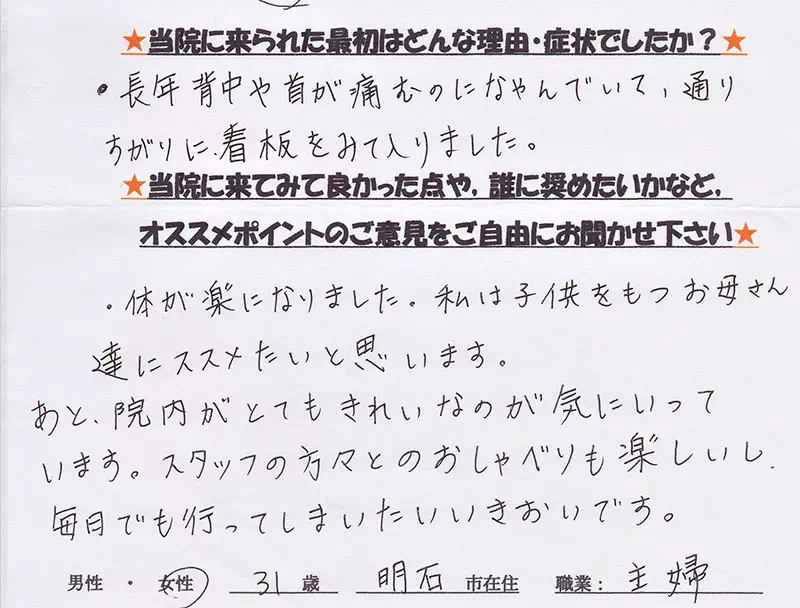 ★当院に来られた最初はどんな理由・症状でしたか？★
・長年背中や首が痛むのになやんでいて、通り
すがりに、看板をみて入りました。
★当院に来てみて良かった点や，誰に奨めたいかなど，
オススメポイントのご意見をご自由にお聞かせ下さい★
・体が楽になりました。私は子供をもつお母さん
達にススメたいと思います。
あと、院内がとてもきれいなのが気にいって
います。スタッフの方々とのおしゃべりも楽しいし、
毎日でも行ってしまいたいいきおいです。
男性 ・ 女性 31 歳 明石 市在住 職業： 主婦